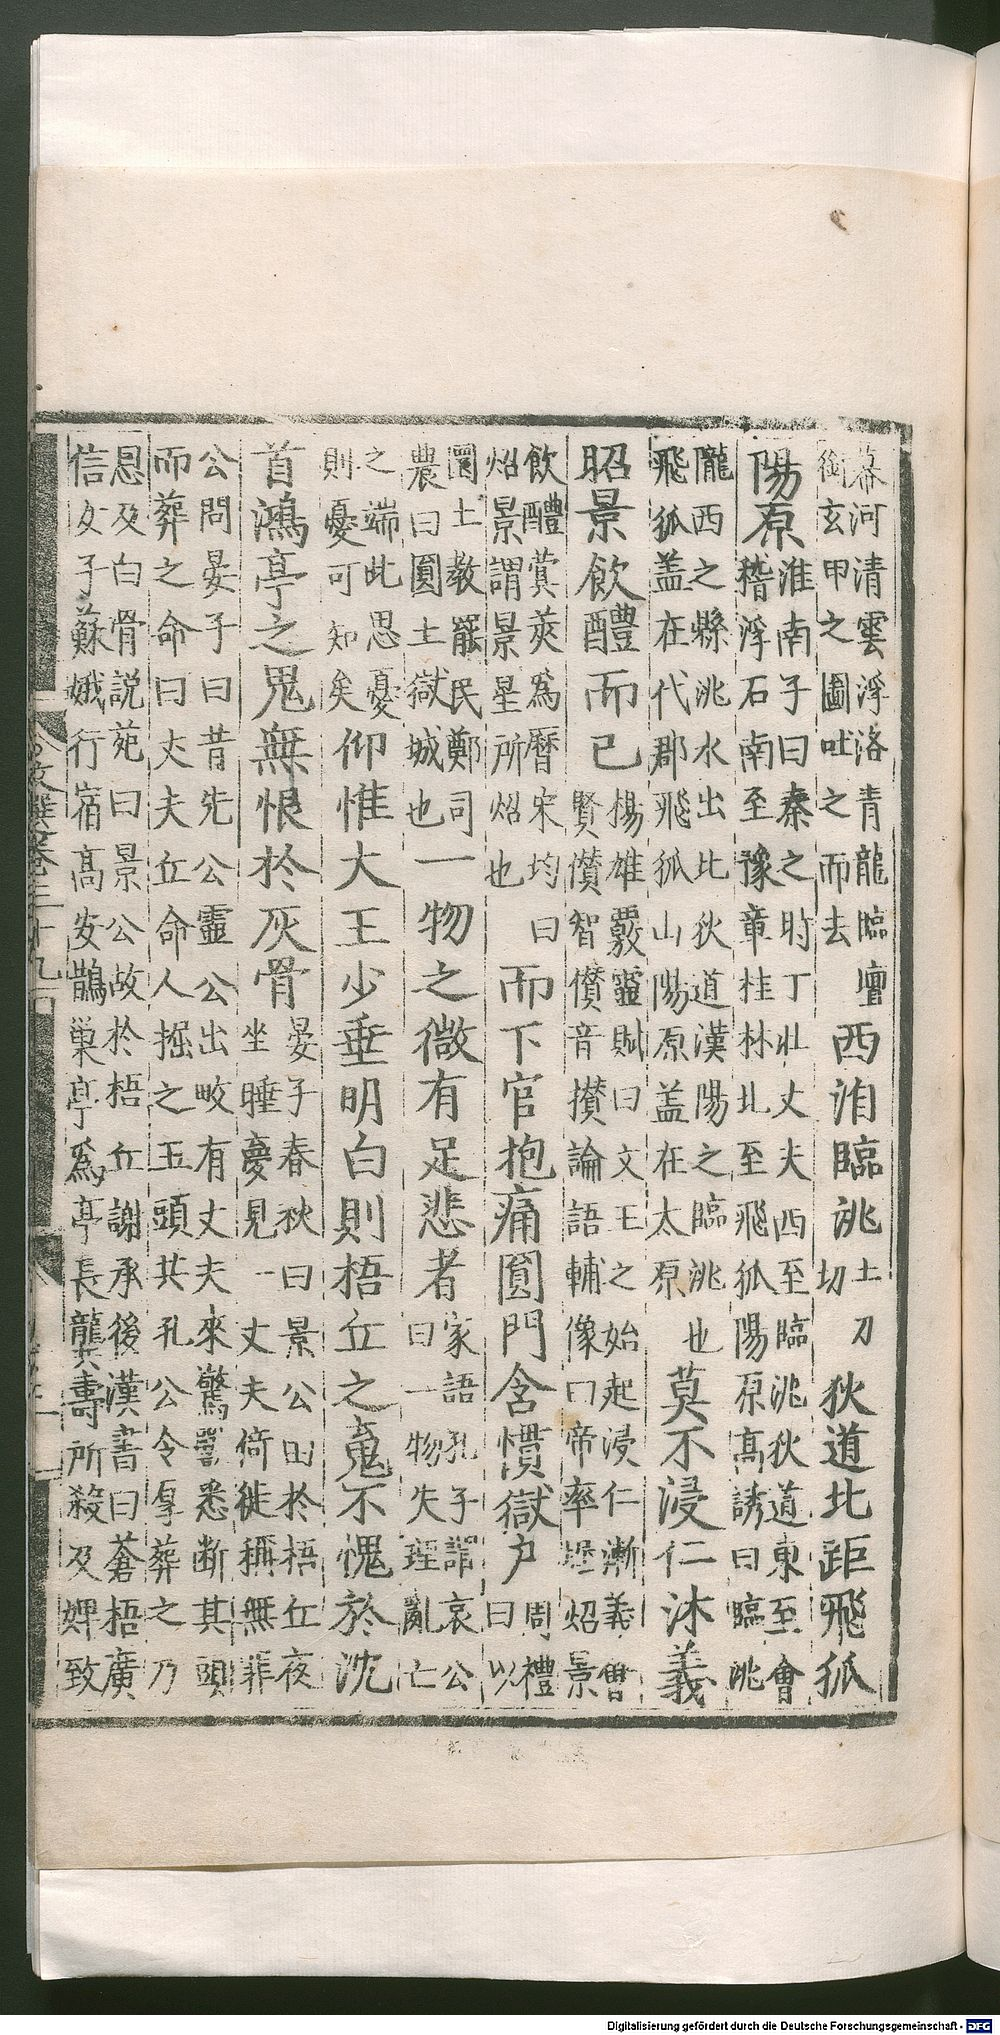 幕河清雲浮洛青龍臨壇
銜玄甲之圖吐之而去
西洎臨洮
土刀
切
狄道北距飛狐
陽原
淮南子曰秦之時丁壯丈夫西至臨洮狄道東至會
稽浮石南至豫章桂林北至飛狐陽原髙誘曰臨洮
隴西之縣洮水出北狄道漢陽之臨洮也
飛狐盖在代郡飛狐山陽原盖在太原
莫不浸仁沐義
昭景飲醴而已
楊雄覈靈賦曰文王之始起浸仁漸義會
賢儹智儹音攅論語輔像曰帝率炤景
飲醴蓂莢為曆宋均曰
炤景謂景星所炤也
而下官抱痛圓門含憤獄户
周禮
曰以
圜土教罷民鄭司
農曰圓土獄城也
一物之微有足悲者
家語孔子謂哀公
曰一物失理亂亡
之端此思憂
則憂可知矣
仰惟大王少垂明白則梧丘之䰟不愧於沈
首鴻亭之鬼無恨於灰骨
晏子春秋曰景公田於梧丘夜
坐睡夢見一丈夫倚徙稱無罪
公問晏子曰昔先公靈公出畋有丈夫來驚獸悉断其頭
而葬之命曰丈夫丘命人掘之五頭共孔公令厚葬之乃
恩及白骨説苑曰景公故於梧丘謝承後漢書曰蒼梧廣
信女子蘇娥行宿髙安鵲巢亭為亭長龔壽所殺及婢致
文選卷三十九
Digitalisierung gefördert durch die Deutsche Forschungsgemeinschaft - DFG